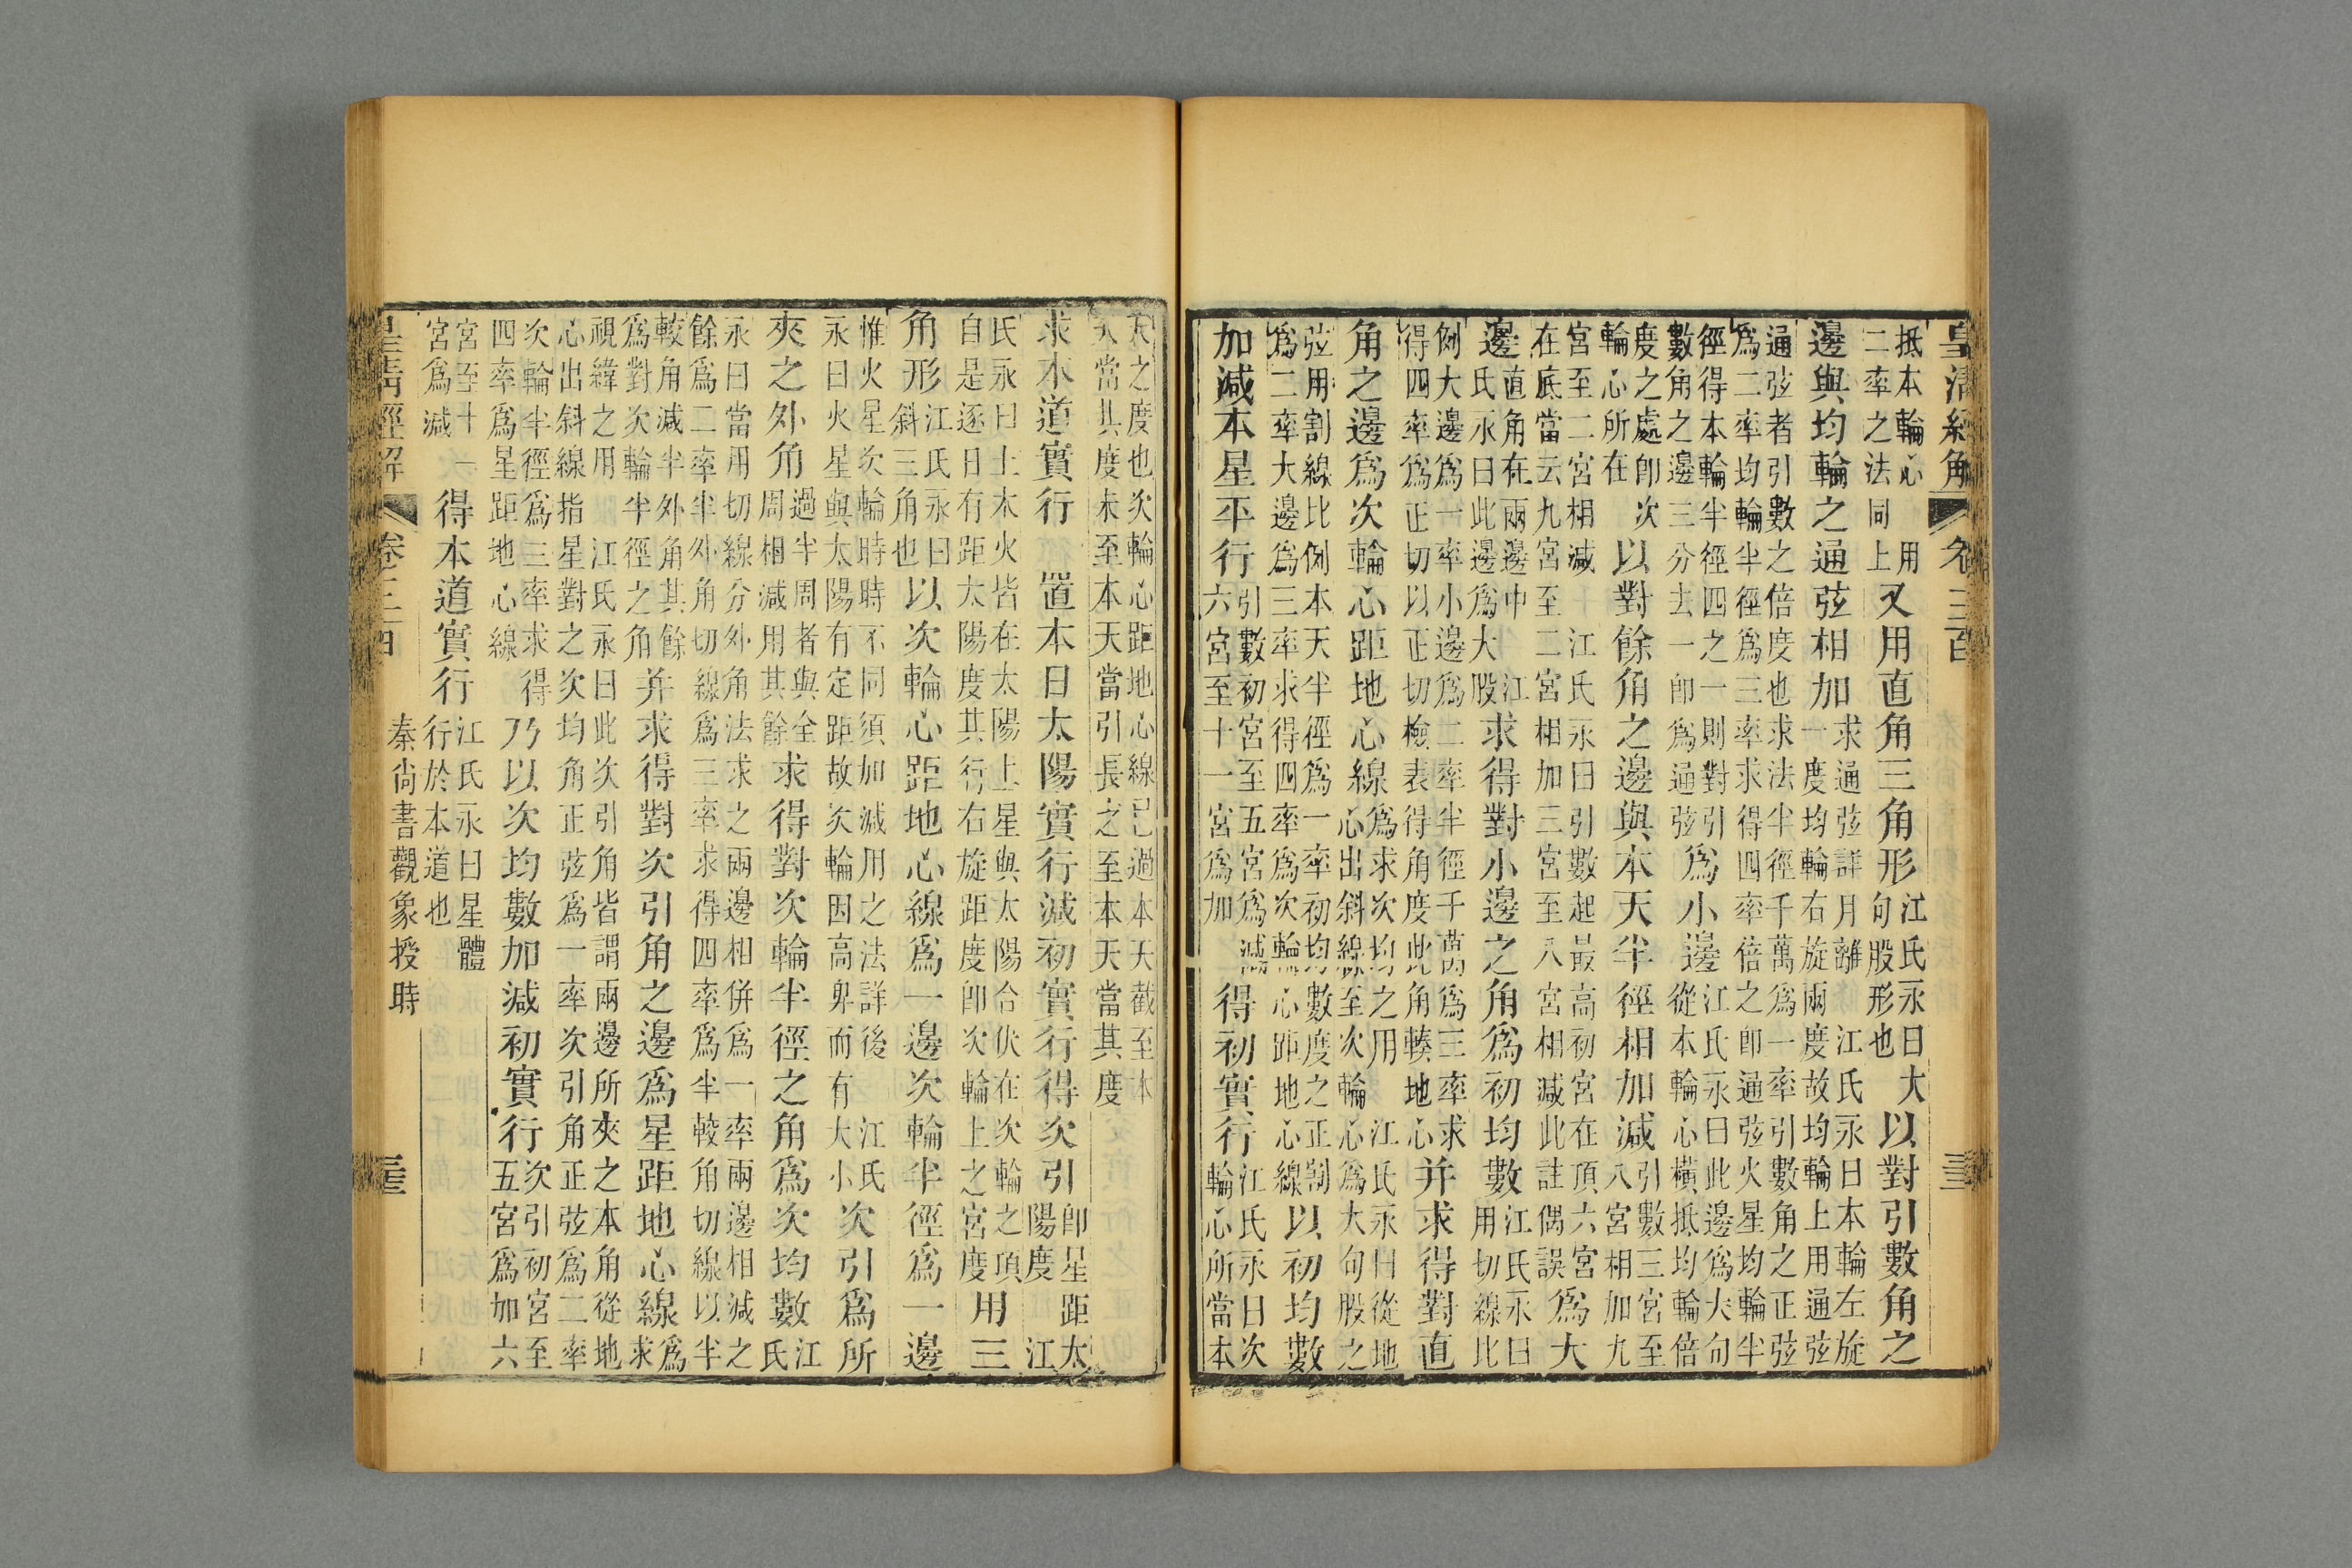 皇清經解
抵本輪心用
二率之法同上
又用直角三角形
江氏永曰大
句股形也
以對引數角之
邊與均輪之通弦相加
求通弦詳月離 江氏永曰本輪左旋
一度均輪右旋兩度故均輪上用通弦
通弦者引數之倍度也求法半徑千萬為一率引數角之正弦
為二率均輪半徑為三率求得四率倍之即通弦火星均輪半
徑得本輪半徑四之一則對引
數角之邊三分去一即為通弦
為小邊
江氏永曰此邊為大句
從本輪心橫抵均輪倍
度之處即次
輪心所在
以對餘角之邊與本天半徑相加減
引數三宮至
八宮相加九
宮至二宮相減 江氏永曰引數起最高初宮在頂六宮
在底當云九宮至二宮相加三宮至八宮相減此註偶誤
為大
邊
直角在兩邊中 江
氏永曰此邊為大股
求得對小邊之角為初均數
江氏永曰
用切線比
例大邊為一率小邊為二率半徑千萬為三率求
得四率為正切以正切檢表得角度此角輳地心
并求得對直
角之邊為次輪心距地心線
為求次均之用 江氏永曰從地
心出斜線至次輪心為大句股之
弦用割線比例本天半徑為一率初均數度之正割
為二率大邊為三率求得四率為次輪心距地心線
以初均數
加減本星平行
引數初宮至五宮為減
六宮至十一宮為加
得初實行
江氏永曰次
輪心所當本
天之度也次輪心距地心線已過本天截至本
天當其度未至本天當引長之至本天當其度
求本道實行 置本日太陽實行減初實行得次引
即星距太
陽度 江
氏永曰土木火皆在太陽上星與太陽合伏在次輪之頂
自是逐日有距太陽度其行右旋距度即次輪上之宮度
用三
角形
江氏永曰
斜三角也
以次輪心距地心線為一邊次輪半徑為一邊
惟火星次輪時時不同須加減用之法詳後 江氏
永曰火星與太陽有定距故次輪因高卑而有大小
次引為所
夾之外角
過半周者與全
周相減用其餘
求得對次輪半徑之角為次均數
江
氏
永曰當用切線分外角法求之兩邊相併為一率兩邊相減之
餘為二率半外角切線為三率求得四率為半較角切線以半
較角減半外角其餘
為對次輪半徑之角
并求得對次引角之邊為星距地心線
為
求
視緯之用 江氏永曰此次引角皆謂兩邊所夾之本角從地
心出斜線指星對之次均角正弦為一率次引角正弦為二率
次輪半徑為三率求得
四率為星距地心線
乃以次均數加減初實行
次引初宮至
五宮為加六
宮至十一
宮為減
得本道實行
江氏永曰星體
行於本道也
皇清經解 卷三 秦尚書觀象授時